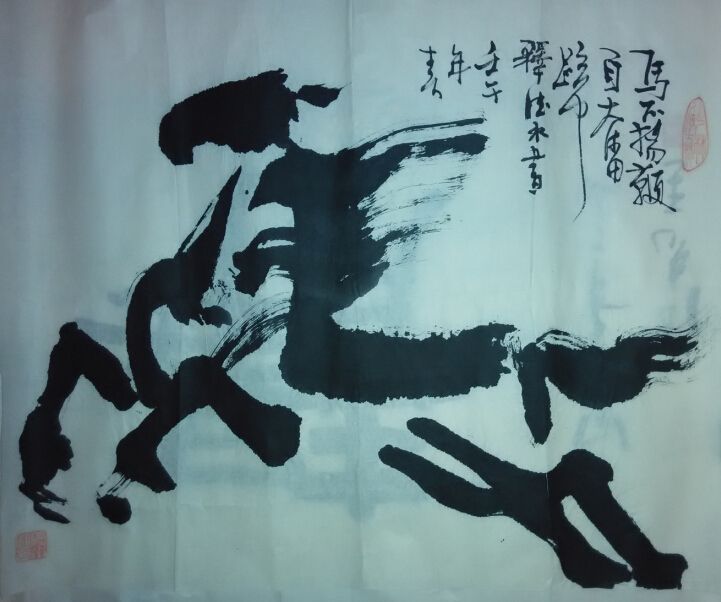 馬不揚鞭
自大奮
蹄中
釋永書
壬午
年
春